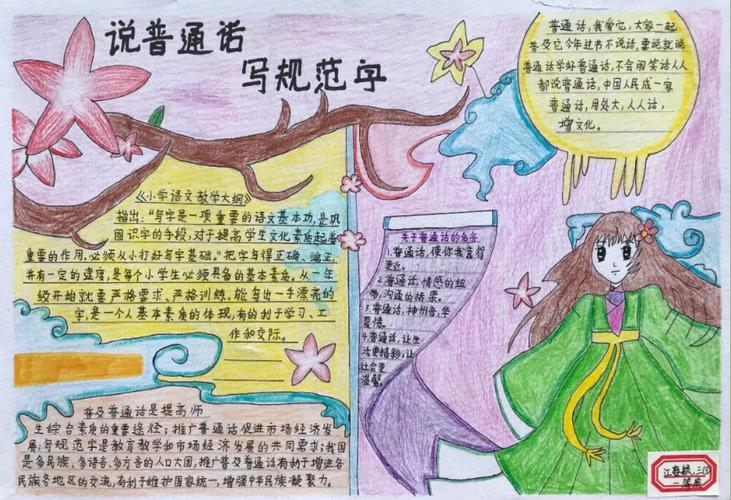 说普通话
写规范字
《小学语文教学大纲》
指出:“写字是一项重要的语文基本功,是巩
固识字的手段,对于提高学生文化素质起着
重要的作用,必须从小打好写字基础。”把字写得正确、端正,
并有一定的速度,是每个小学生必须具备的基本素质。从一年
级开始就要严格要求、严格训练,能写出一手漂亮的
字,是一个人基本素质的体现,有的利于学习、工
作和交际。
普及普通话是提高师
生综合素质的重要途径;推广普通话促进市场经济发
展;写规范字是教育教学和市场经济发展的共同需求;我国
是多民族、多语言、多方言的人口大国,推广普及普通话有利于增进各
民族各地区的交流,有利于维护国家统一,增强中华民族凝聚力。
普通话,我爱它,大家一起
普及它今年过书不说话,要说就说
普通话学好普通话,不会闹笑话人人
都说普通话,中国人民成一家
普通话,用处大,人人话,
增文化。
关于普通话的名言
1.普通话,使你我靠得
更近。
2.普通话,情感的纽
带,沟通的桥梁。
3.普通话,神州音,华
夏情。
4.普通话,让生
活更精彩;让
社会更
温馨。
三(5)
一等奖